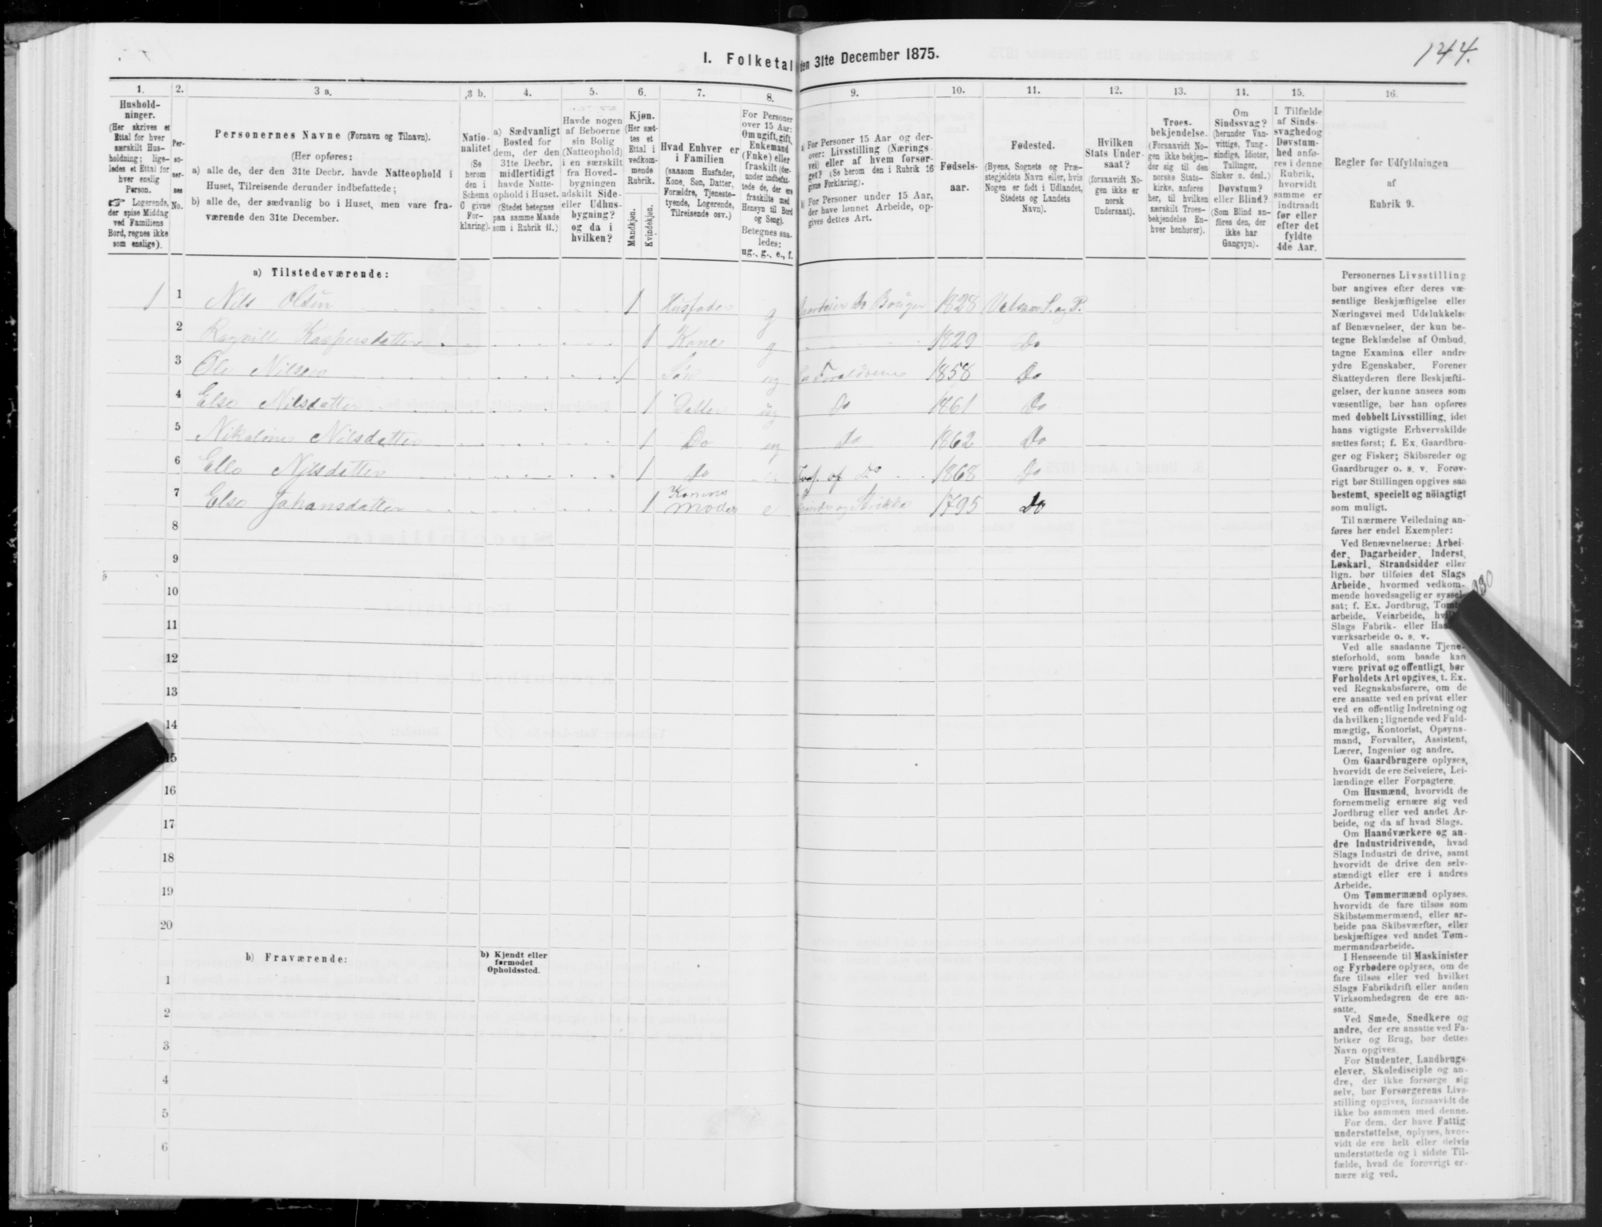 I. Folketal den 31te December 1875.
144.
1.
Hushold-
ninger.
(Her skrives et
Ettal for hver
særskilt Hus-
holdning; lige-
ledes et Ettal for
hver enslig
Person.
☞ Logerende,
der spise Middag
ved Familiens
Bord, regnes ikke
som enslige).
2.
Per-
so-
ner-
nes
No.
3 a.
Personernes Navne (Fornavn og Tilnavn).
(Her opføres:
a) alle de, der den 31te Decbr. havde Natteophold i
Huset, Tilreisende derunder indbefattede;
b) alle de, der sædvanlig bo i Huset, men vare fra-
værende den 31te December.
3 b.
Natio-
nalitet
(Se
herom
den i
Schema
C givne
For-
klaring).
4.
a) Sædvanligt
Bosted for
dem, der den
31te Decbr.
midlertidigt
havde Natte-
ophold i Huset.
(Stedet betegnes
paa samme Maade
som i Rubrik 11.)
5.
Havde nogen
af Beboerne
sin Bolig
(Natteophold)
i en særskilt
fra Hoved-
bygningen
adskilt Side-
eller Udhus-
bygning?
og da i
hvilken?
6.
Kjøn.
(Her sæt-
tes et
Ettal i
vedkom-
mende
Rubrik.
Mandkjøn.
Kvindekjøn.
7.
Hvad Enhver er
i Familien
(saasom Husfader,
Kone, Søn, Datter,
Forældre, Tjeneste-
tyende, Logerende,
Tilreisende osv.)
8.
For Personer
over 15 Aar:
Om ugift, gift,
Enkemand
(Enke) eller
fraskilt (der-
under indbefat-
tede de, der ere
fraskilte med
Hensyn til Bord
og Seng).
Betegnes saa-
ledes:
ug., g., e., f.
9.
a) For Personer 15 Aar og der-
over: Livsstilling (Nærings-
vei) eller af hvem forsør-
get? (Se herom den i Rubrik 16
givne Forklaring).
b) For Personer under 15 Aar,
der have lønnet Arbeide, op-
gives dettes Art.
10.
Fødsels-
aar.
11.
Fødested.
(Byens, Sognets og Præ-
stegjeldets Navn eller, hvis
Nogen er født i Udlandet,
Stedets og Landets
Navn).
12.
Hvilken
Stats Under-
saat?
(forsaavidt No-
gen ikke er
norsk
Undersaat).
13.
Troes-
bekjendelse.
(Forsaavidt No-
gen ikke bekjen-
der sig til den
norske Stats-
kirke, anføres
her, til hvilken
særskilt Troes-
bekjendelse En-
hver henhører).
14.
Om
Sindssvag?
(herunder Van-
vittige, Tung-
sindige, Idioter,
Tullinger,
Sinker o. desl.)
Døvstum?
eller Blind?
(Som Blind an-
føres den, der
ikke har
Gangsyn).
15.
I Tilfælde
af Sinds-
svaghed og
Døvstum-
hed anfø-
res i denne
Rubrik,
hvorvidt
samme er
indtraadt
før eller
efter det
fyldte
4de Aar.
16.
Regler for Udfyldningen
af
Rubrik 9.
a) Tilstedeværende:
1 1 Nils Olsen 1 Husfader g 1828
2 Kaspersdatter 1 Kone g 1829 Do
3 Ole Nilsen 1 Søn ug 1858 Do
4 Else Nilsdatter 1 ug Do 1861 Do
5 Nikoline Nilsdatter 1 Do ug Do 1862 Do
6 Nilsdatter 1 do af Do 1868 Do
7 Else Johansdatter 1 Konens Moder e 1795 Do
8
9
10
11
12
13
14
15
16
17
18
19
20
b) Fraværende:
b) Kjendt eller
formodet
Opholdssted.
1
2
3
4
5
6
Personernes Livsstilling
bør angives efter deres væ-
sentlige Beskjæftigelse eller
Næringsvei med Udelukkelse
af Benævnelser, der kun be-
tegne Beklædelse af Ombud,
tagne Examina eller andre
ydre Egenskaber. Forener
Skatteyderen flere Beskjæfti-
gelser, der kunne ansees som
væsentlige, bør han opføres
med dobbelt Livsstilling, idet
hans vigtigste Erhvervskilde
sættes først; f. Ex. Gaardbru-
ger og Fisker; Skibsreder og
Gaardbruger o. s. v. Forøv-
rigt bør Stillingen opgives saa
bestemt, specielt og nøiagtigt
som muligt.
Til nærmere Veiledning an-
føres her endel Exempler:
Ved Benævnelserne: Arbei-
der, Dagarbeider, Inderst,
Løskarl, Strandsidder eller
lign. bør tilføies det Slags
Arbeide, hvormed vedkom-
mende hovedsagelig er syssel-
sat; f. Ex. Jordbrug, Tomte-
arbeide, Veiarbeide, hvilket
Slags Fabrik- eller Haand-
værksarbeide o. s. v.
Ved alle saadanne Tjene-
steforhold, som baade kan
være privat og offentligt, bør
Forholdets Art opgives, t. Ex.
ved Regnskabsførere, om de
ere ansatte ved en privat eller
ved en offentlig Indretning og
da hvilken; lignende ved Fuld-
mægtig, Kontorist, Opsyns-
mand, Forvalter, Assistent,
Lærer, Ingeniør og andre.
Om Gaardbrugere oplyses,
hvorvidt de ere Selveiere, Lei-
lændinge eller Forpagtere.
Om Husmænd, hvorvidt de
fornemmelig ernære sig ved
Jordbrug eller ved andet Ar-
beide, og da af hvad Slags.
Om Haandværkere og an-
dre Industridrivende, hvad
Slags Industri de drive, samt
hvorvidt de drive den selv-
stændigt eller ere i andres
Arbeide.
Om Tømmermænd oplyses,
hvorvidt de fare tilsøs som
Skibstømmermænd, eller ar-
beide paa Skibsværfter, eller
beskjæftiges ved andet Tøm-
mermandsarbeide.
I Henseende til Maskinister
og Fyrbødere oplyses, om de
fare tilsøs eller ved hvilket
Slags Fabrikdrift eller anden
Virksomhedsgren de ere an-
satte.
Ved Smede, Snedkere og
andre, der ere ansatte ved Fa-
briker og Brug, bør dettes
Navn opgives.
For Studenter, Landbrugs-
elever, Skoledisciple og an-
dre, der ikke forsørge sig
selv, bør Forsørgerens Livs-
stilling opgives, forsaavidt de
ikke bo sammen med denne.
For dem, der have Fattig-
understøttelse, oplyses, hvor-
vidt de ere helt eller delvis
understøttede og i sidste Til-
fælde, hvad de forøvrigt er-
nære sig ved.